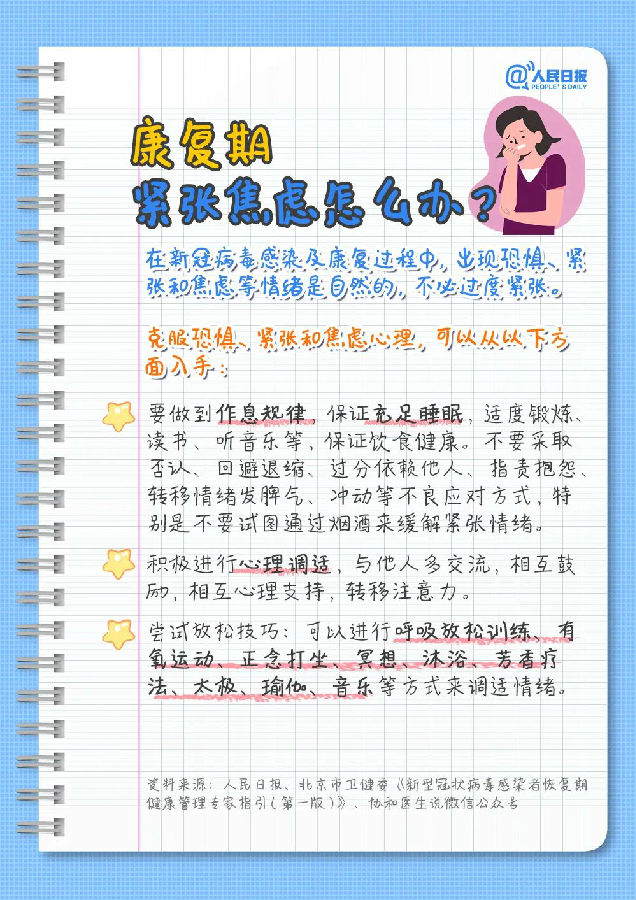 @人民日报
PEOPLE'S DAILY
康复期
紧张焦虑怎么办？
在新冠病毒感染及康复过程中，出现恐惧、紧
张和焦虑等情绪是自然的，不必过度紧张。
克服恐惧、紧张和焦虑心理，可以从以下方
面入手：
要做到作息规律，保证充足睡眠，适度锻炼、
读书、听音乐等，保证饮食健康。不要采取
否认、回避退缩、过分依赖他人、指责抱怨、
转移情绪发脾气、冲动等不良应对方式，特
别是不要试图通过烟酒来缓解紧张情绪。
积极进行心理调适，与他人多交流，相互鼓
励，相互心理支持，转移注意力。
尝试放松技巧：可以进行呼吸放松训练、有
氧运动、正念打坐、冥想、沐浴、芳香疗
法、太极、瑜伽、音乐等方式来调适情绪。
资料来源：人民日报、北京市卫健委《新型冠状病毒感染者恢复期
健康管理专家指引（第一版）》、协和医生说微信公众号